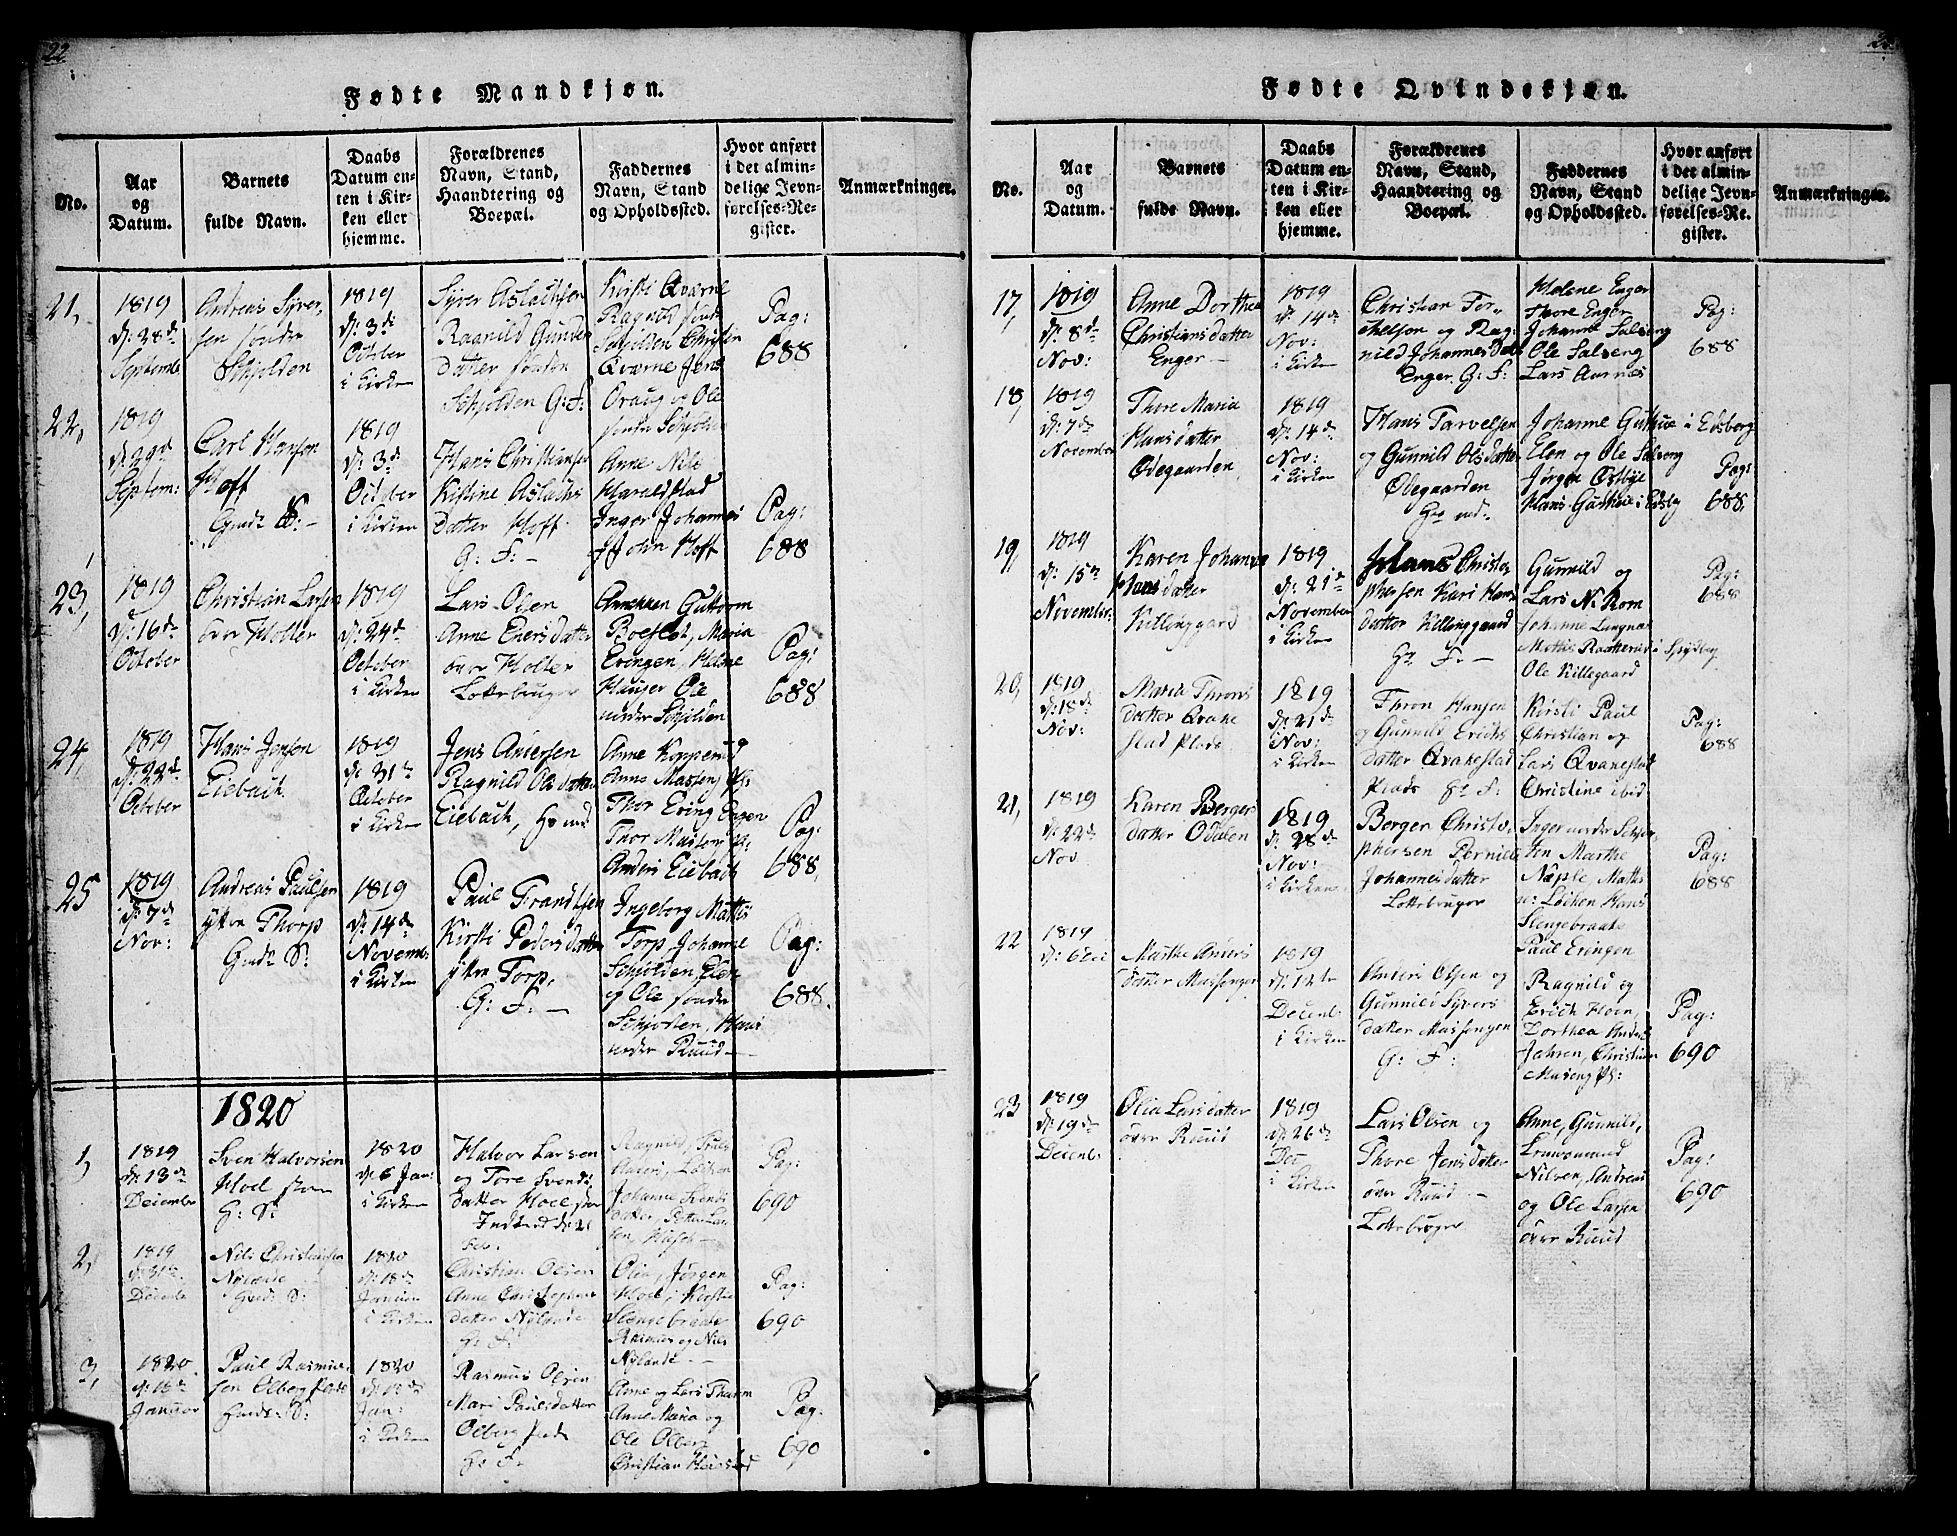 22
Fødte Mandkjøn.
No.
Aar
og
Datum.
Barnets
fulde Navn.
Daabs
Datum en-
ten i Kir-
ken eller
hjemme.
Forældrenes
Navn, Stand,
Haandtering og
Boepæl.
Faddernes
Navn, Stand
og Opholdssted.
Hvor anført
i det almin-
delige Jevn-
førelses-Re-
gister.
Anmærkninger.
21,
1819
d: 28de
Septembr
Andreas Syver-
sen søndre
Schjolden
1819
d: 3de
October
i Kirken
Syver Aslachsen
Ragnild Gunder
datter søndre
Schjolden G: F:
Kirsti Qværne
Ragnild søndr
Schjolden Christen
Qværne Jens
Oraug og Ole
søndre Schjolden
Pag:
688
22,
1819
d: 29de
Septem:
Carl Hansen
Hoff
Gmdr S: -
1819
d: 3de
October
i Kirken
Hans Christiansen
Kistine Aslachs
datter Hoff
G: F: -
Anne Nils
Haraldstad
Inger Johannes
John Hoff
Pag:
688
23,
1819
d: 16de
October
Christian Larsen
over Holter
1819
d: 24de
October
i Kirken
Lars Olsen
Anne Enersdatter
over Holter
Lottebruger
Annekken Guttorm
Maria
Eringen, Helene
Ole
nordre Schjolden
Pag:
688
24,
1819
d: 22de
October
Hans Jensen
Eiebach
1819
d: 31te
October
i Kirken
Jens Andersen
Ragnild Olsdatter
Eiebach,
Anne Kopperud
Anne Masseng Pl:
Thor Ering Engen
Thor Masseng Pl:
Anders Eiebach
Pag:
688,
25
1819
d: 7de
Nov:
Andreas Paulsen
ytre Thorp
Gmdr S:
1819
d: 14de
Novemb:
i Kirken
Paul Frandtsen
Kirsti Pedersdatter
ytre Torp,
G: F: -
Ingeborg Mattis
Torp, Johanne
Schjolden, Elen
og Ole søndre
Schjolden, Hans
nordre Ruud
Pag:
688.
1820
1,
1819
d: 13de
Decembr
Sven Halvorsen
Hoel
G: S:
1820
d: 6 Jan:
i Kirken
Halvor Larsen
og Tore Svends
datter Hoel
Johanne Svends
datter, Petter Lar
sen,
Pag:
690
2,
1819
d: 31te
Decembr
Nils Christiansen
Nylænde
Gmdr: S:
1820
d: 18de
Januar
i Kirken
Christian Olsen
Anne Christophers
datter Nylænde
G: F:
Olia, Jørgen
Hoel, Kirstie
Slengebraate
Rasmus og Nils
Nylande
Pag:
690
3,
1820
d: 15de
Januar
Paul Rasmus-
sen Olberg
Gmdr: S:
1820
Jan:
i Kirken
Rasmus Olsen
Mari Paulsdatter
Olberg
G: F.
Anne og Lars
Anne Maria og
Ole Olberg
Christian
Pag:
690
Fødte Qvindekjøn.
No.
Aar
og
Datum.
Barnets
fulde Navn.
Daabs
Datum en-
ten i Kir-
ken eller
hjemme.
Forældrenes
Navn, Stand,
Haandtering og
Boepæl.
Faddernes
Navn, Stand
og Opholdssted.
Hvor anført
i det almin-
delige Jevn-
førelses-Re-
gister.
Anmærkninger.
17,
1819
d: 8de
Nov:
Anne Dorthea
Christiansdatter
Enger -
1819
d: 14de
Nov:
i Kirken
Christian Tor-
chelsen og Rag-
nild Johannesdatt
Enger. G: F:
Helene Enger
Thore Enger
Johanne Salberg
Ole Salberg
Lars Aarnæs
Pag:
688
18,
1819
d: 7de
November
Thore Maria
Hansdatter
Ødegaarden
1819
d: 14de
Nov:
i Kirken
Hans Tarvelsen
og Gunnild Olsdatter
Ødegaarden
Johanne Guthue i Edsberg
Elen og Ole Salberg
Jørgen Østbye
Hans Guthue i Edsbg
Pag:
688,
19,
1819
d: 15de
November:
Karen Johanne
Hansdatter
Killinggard
1819
d: 21de
November
i Kirken
Hans Christo-
phersen Kari Hans
datter Killinggaard
Gr. F. -
Gunnild og
Lars N: Rom
Johanne Langnæs
i Spydbg
Ole Killegaard
Pag:
688
20,
1819
d: 18de
Nov:
Maria Throns
datter Qvake
stad Plads
1819
d: 21de
Nov:
i Kirken
Thron Hansen
og Gunnild Erichs
datter Qvakestad
Plads Gr F:
Kirsti Paul
Christian og
Lars Qvakestad
Christine ibid
Pag:
688
21,
1819
d: 22de
Nov
Karen Bergers
datter Odalen
1819
d: 28de
Nov:
i Kirken
Berger Christo-
phersen Pernille
Johannesdatter
Lottebruger
Inger nordre Schjol-
den Marthe
Næple, Mathis
Løchen Hans
Slengebraate
Paul Eringen
Pag:
688
22
1819
d: 6 Dec
Marthe Anders
datter Massengen
1819
d: 12te
Decemb:
i Kirken
Anders Olsen og
Gunnild Syvers
datter Massengen
G: F:
Ragnild og
Erich Hoen,
Dorthea Anders
Jahren, Christian
Maseng Pl:
Pag:
690
23
1819
d: 19de
Decemb:
Olia Larsdatter
øvre Ruud
1819
d: 26de
Dec
i Kirken
Lars Olsen og
Thore Jensdatter
øvre Ruud -
Lottebruger
Anne, Gunnild,
Nilsen, Andreas
og Ole Larsen
øvre Ruud
Pag:
690